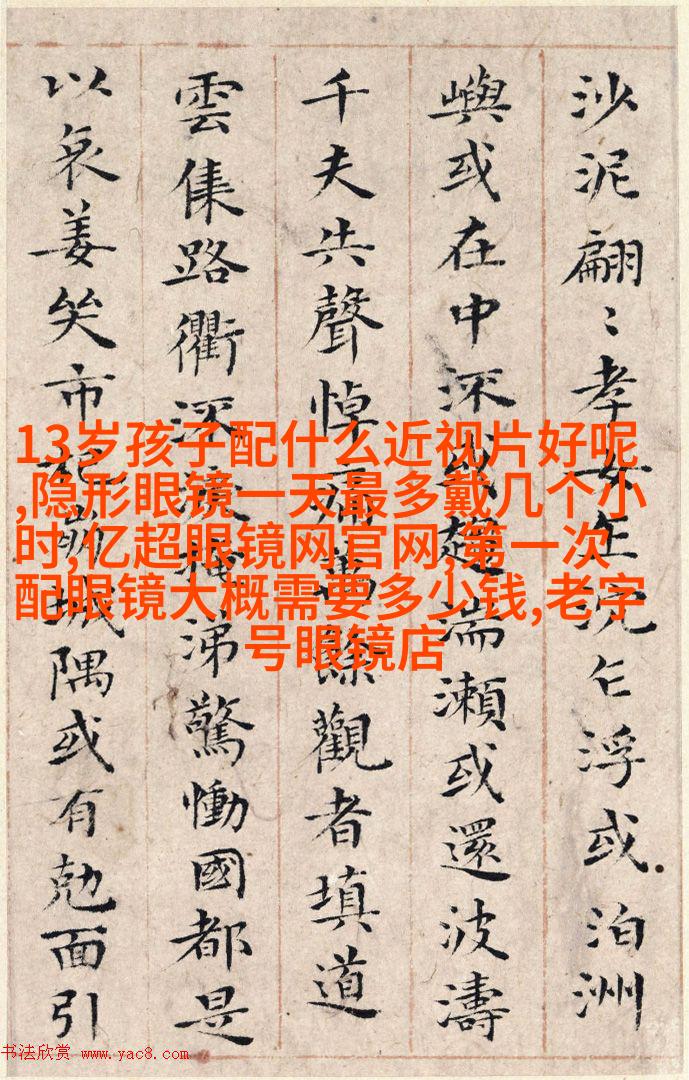 沙泥翩〻孝女乍沉乍浮或泊洲
嶼或在中深或趍湍瀬或還波濤
千夫共聲悼痛萬餘觀者填道
雲集路衢深掩涕驚慟國都是
以哀姜哭市杞崩城隅或有尅面引
13岁孩子配什么近视片好呢
,隐形眼镜一天最多戴几个小
时,亿超眼镜网官网,第一次
配眼镜大概需要多少钱,老字
号眼镜店
书法欣赏 www.yac8.com